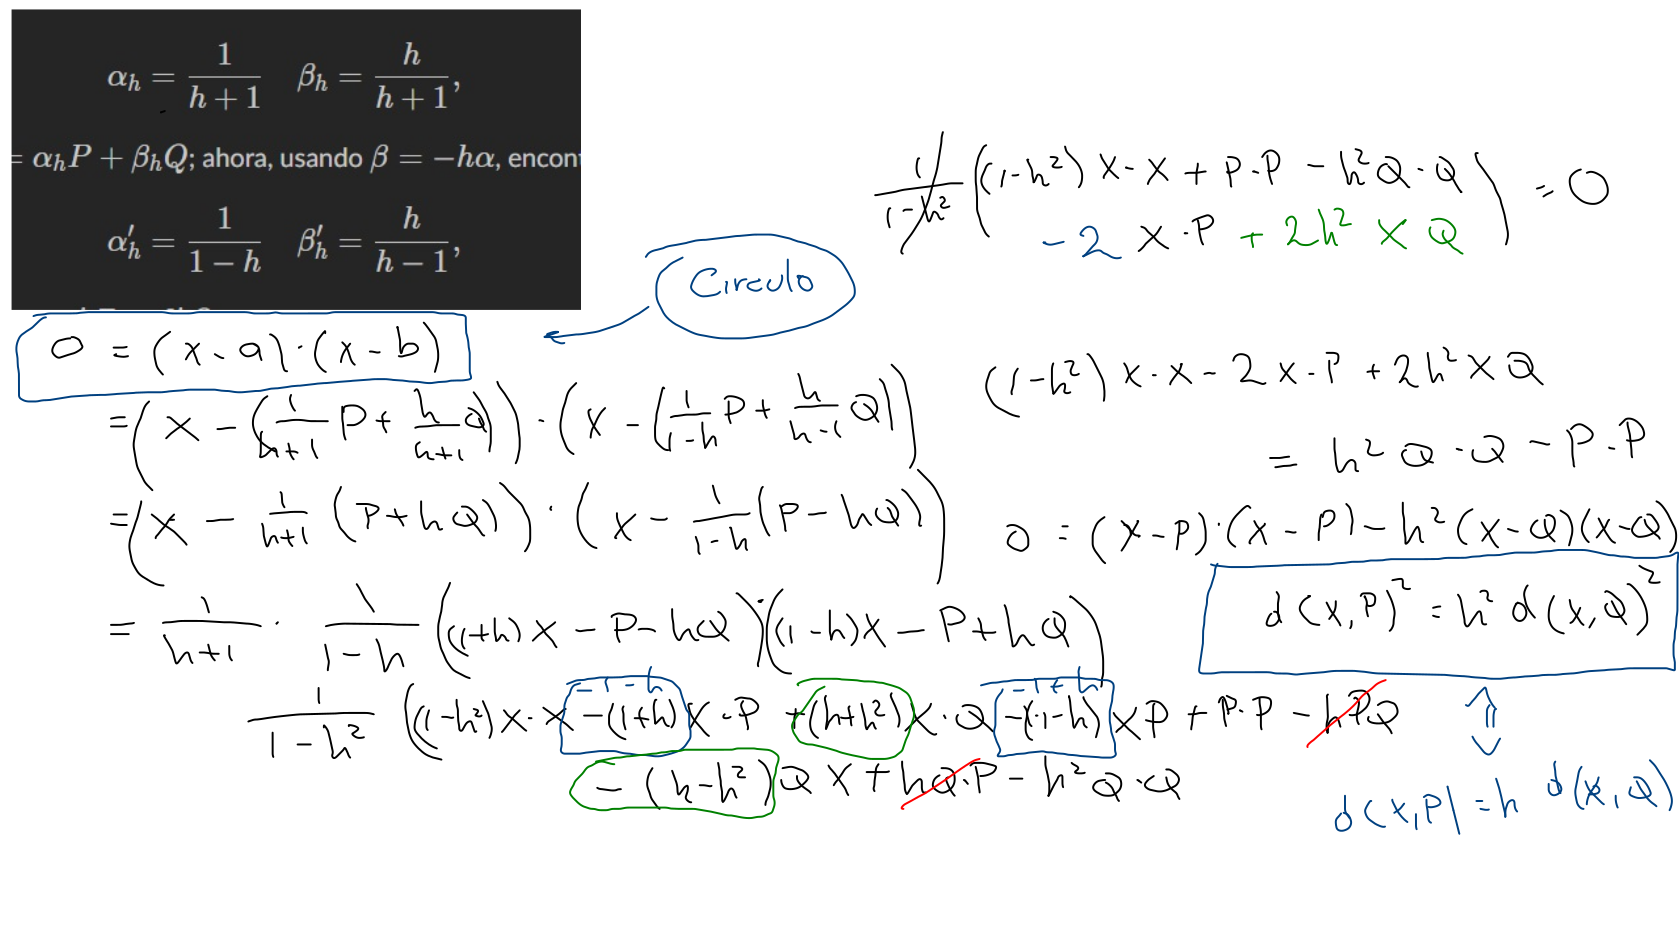 αₕ = 1/(h + 1) βₕ = h/(h + 1),
= αₕP + βₕQ; ahora, usando β = −hα, encon
α′ₕ = 1/(1 − h) β′ₕ = h/(h − 1),
Circulo
0 = (x - a)·(x - b)
= (x - (1/(h+1) P + h/(h+1) Q))·(x - (1/(1-h) P + h/(h-1) Q))
= (x - 1/(h+1) (P + hQ))·(x - 1/(1-h) (P - hQ))
= 1/(h+1) · 1/(1-h) ((1+h)x - P - hQ)·((1-h)x - P + hQ)
-1-h -1+h
1/(1-h²) ((1-h²)x·x -(1+h)x·P +(h+h²)x·Q -(·1-h)xP + P·P - hPQ
-(h-h²)Qx + hQ·P - h²Q·Q
1/(1-h²) ((1-h²)x·x + P·P - h²Q·Q
-2x·P + 2h²xQ) = 0
(1-h²)x·x - 2x·P + 2h²xQ
= h²Q·Q - P·P
0 = (x-P)·(x-P) - h²(x-Q)(x-Q)
d(x,P)² = h² d(x,Q)²
⇕
d(x,P) = h d(x,Q)